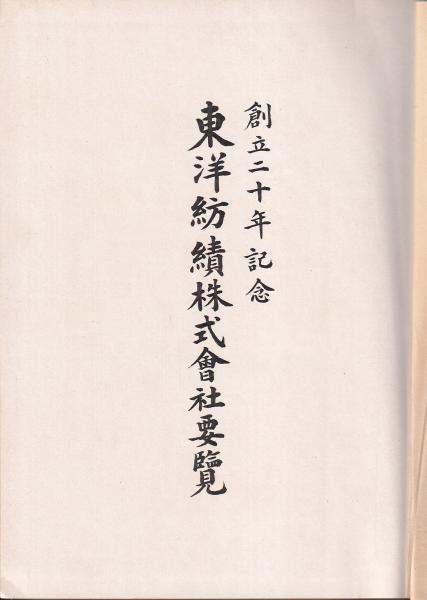 創立二十年記念
東洋紡績株式會社要覽